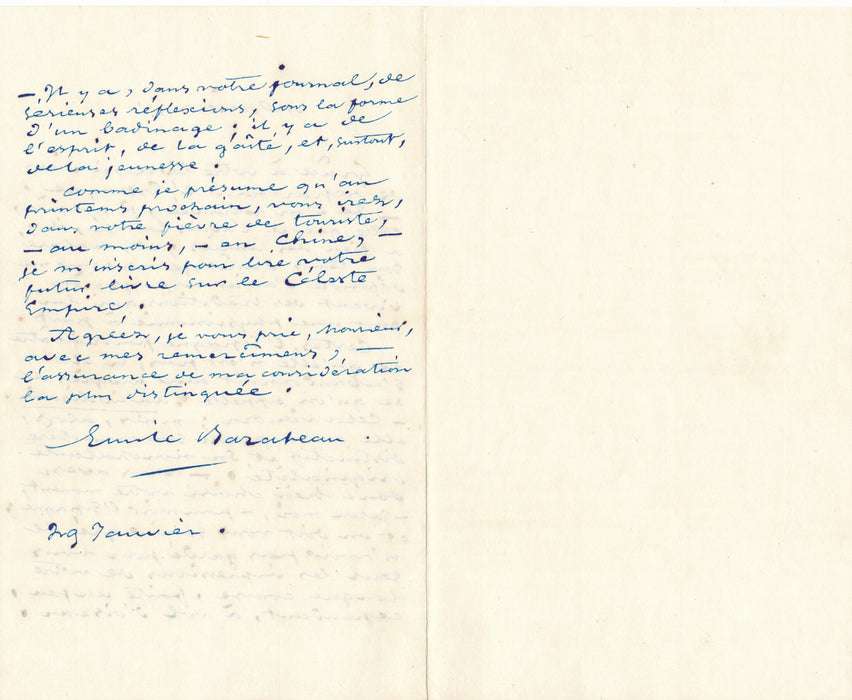 — Il y a, dans votre journal, de
sérieuses réflexions, sous la forme
d'un badinage ; il y a de
l'esprit, de la gaîté, et, surtout,
de la jeunesse .
Comme je présume qu'au
printems prochain, vous irez,
dans votre fièvre de touriste,
— au moins, — en Chine, —
je m'inscris pour lire votre
futur livre sur le Céleste
Empire .
Agréez, je vous prie, monsieur,
avec mes remercîmens, —
l'assurance de ma considération
la plus distinguée .
Emile
29 Janvier .